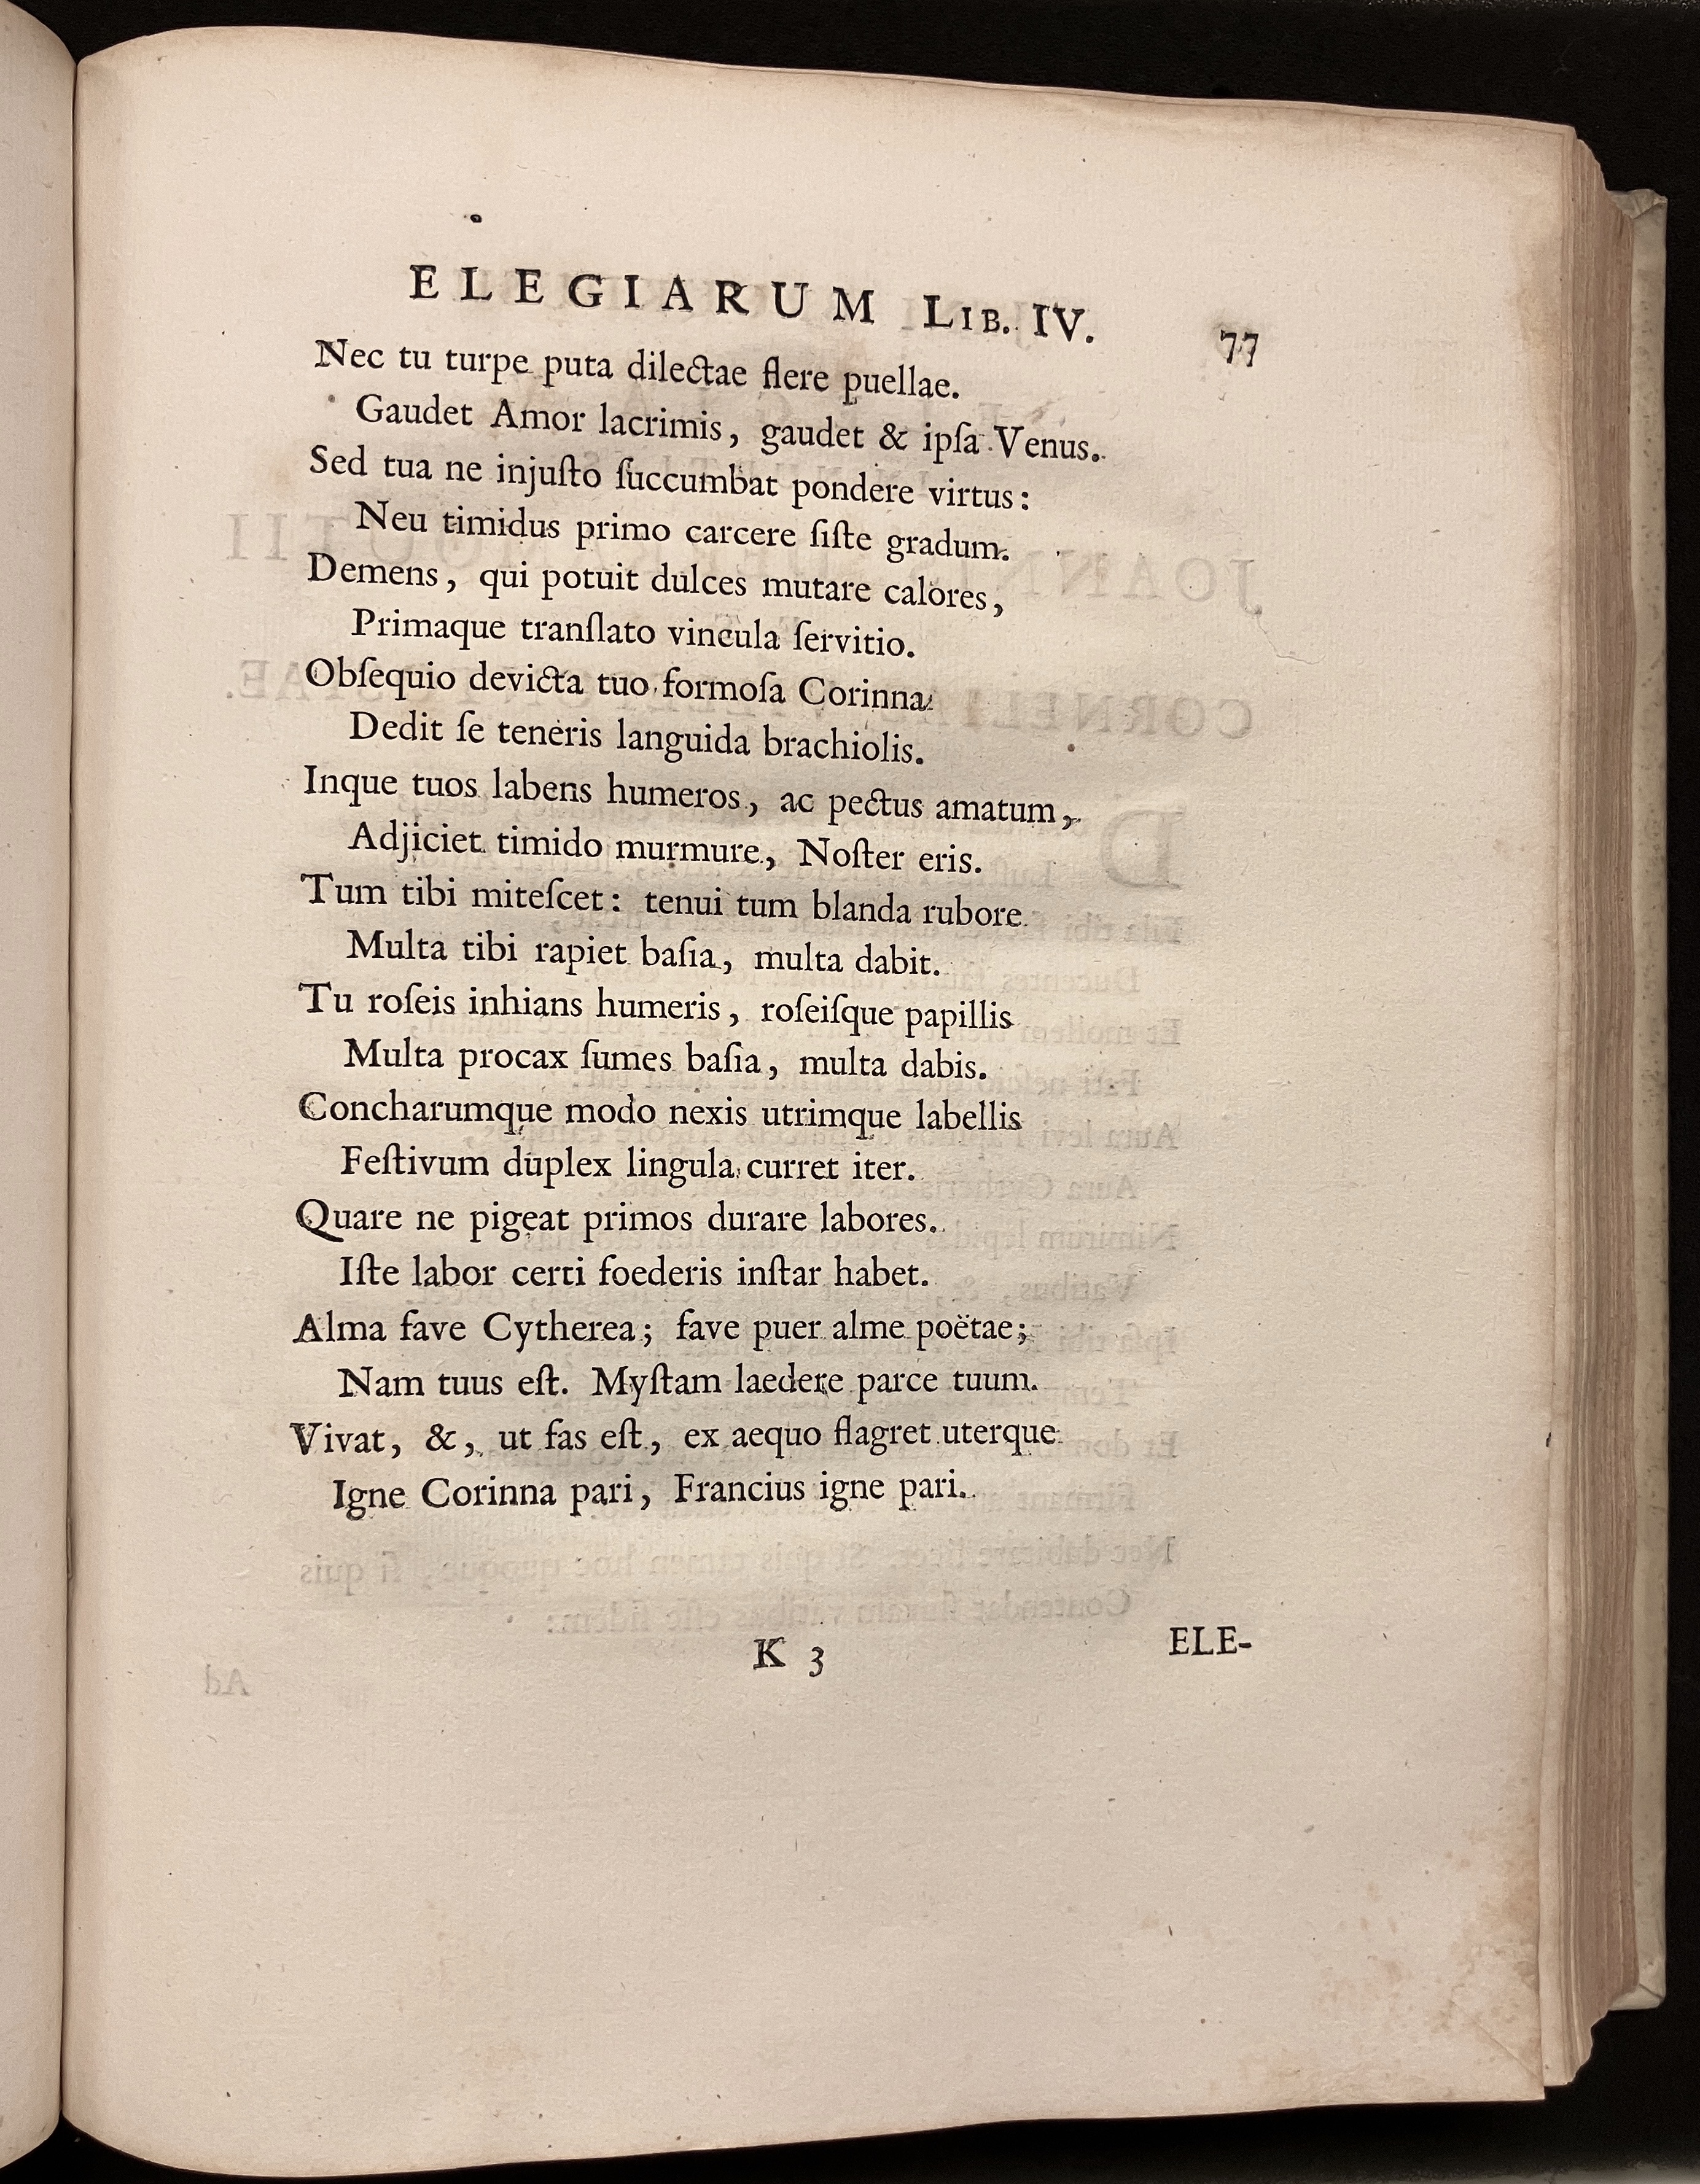 ELEGIARUM LIB. IV. 77
Nec tu turpe puta dilectae flere puellae.
Gaudet Amor lacrimis, gaudet & ipſa Venus.
Sed tua ne injuſto ſuccumbat pondere virtus:
Neu timidus primo carcere ſiſte gradum.
Demens, qui potuit dulces mutare calores,
Primaque tranſlato vincula ſervitio.
Obſequio devicta tuo formoſa Corinna
Dedit ſe teneris languida brachiolis.
Inque tuos labens humeros, ac pectus amatum,
Adjiciet timido murmure, Noſter eris.
Tum tibi miteſcet: tenui tum blanda rubore
Multa tibi rapiet baſia, multa dabit.
Tu roſeis inhians humeris, roſeiſque papillis
Multa procax ſumes baſia, multa dabis.
Concharumque modo nexis utrimque labellis
Feſtivum duplex lingula curret iter.
Quare ne pigeat primos durare labores.
Iſte labor certi foederis inſtar habet.
Alma fave Cytherea; fave puer alme poëtae;
Nam tuus eſt. Myſtam laedere parce tuum.
Vivat, &, ut fas eſt, ex aequo flagret uterque
Igne Corinna pari, Francius igne pari.
K 3 ELE-